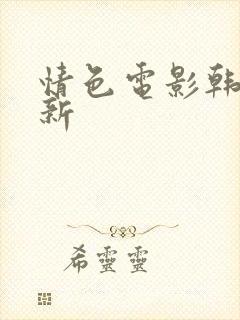 情色電影韩
新
希靈靈